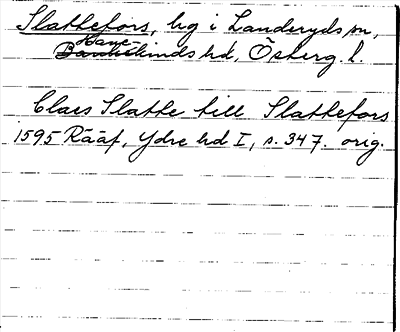 Slattefors, hg i Landeryds sn,
Hane-
Bankekinds hd, Östergl.
Claes Slatte till Slattefors
1595 Rääf, Ydre hd I, s. 347. orig.